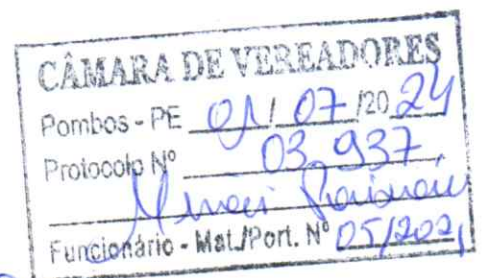 CÂMARA DE VEREADORES
Pombos - PE 01/07/2024
Protocolo Nº 03.937
Funcionário - Mat./Port. Nº 05/2021